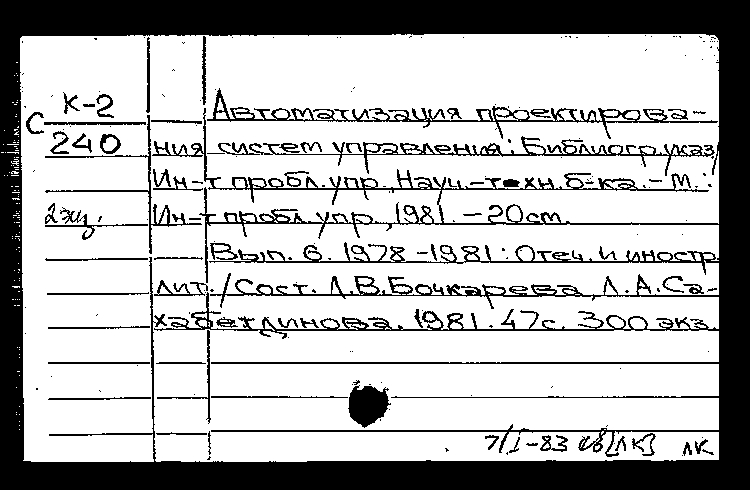 К-2
С
240
2 экз.
Автоматизация проектирова-
ния систем управления: Библиогр. указ/
Ин-т пробл. упр., Науч.-техн. б-ка. - М.:
Ин-т пробл. упр., 1981. - 20 см.
Вып. 6. 1978-1981: Отеч. и иностр.
лит. / Сост. Л.В. Бочкарева, Л.А. Са-
хабетдинова. 1981. 47с. 300 экз.
7/I-83 [ЛК] ЛК